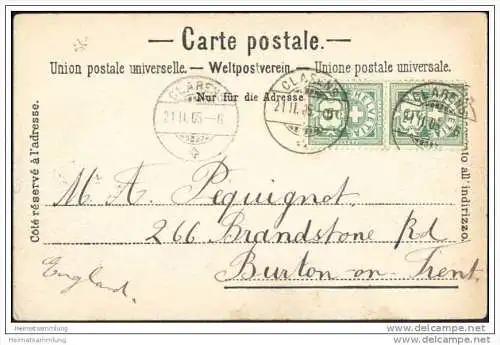 — Carte postale. —
Union postale universelle. — Weltpostverein. — Unione postale universale.
Nur für die Adresse
CLARENS
21.II.05-6
CLARENS
21.II.05
CLARENS
21.II.05
HELVETIA
5
Côté réservé à l'adresse.
all' indirizzo.
M. A. Pequignot.
266 Brandstone Rd
Burton-on-Trent.
England.
Heimatsammlung
Heimatsammlung